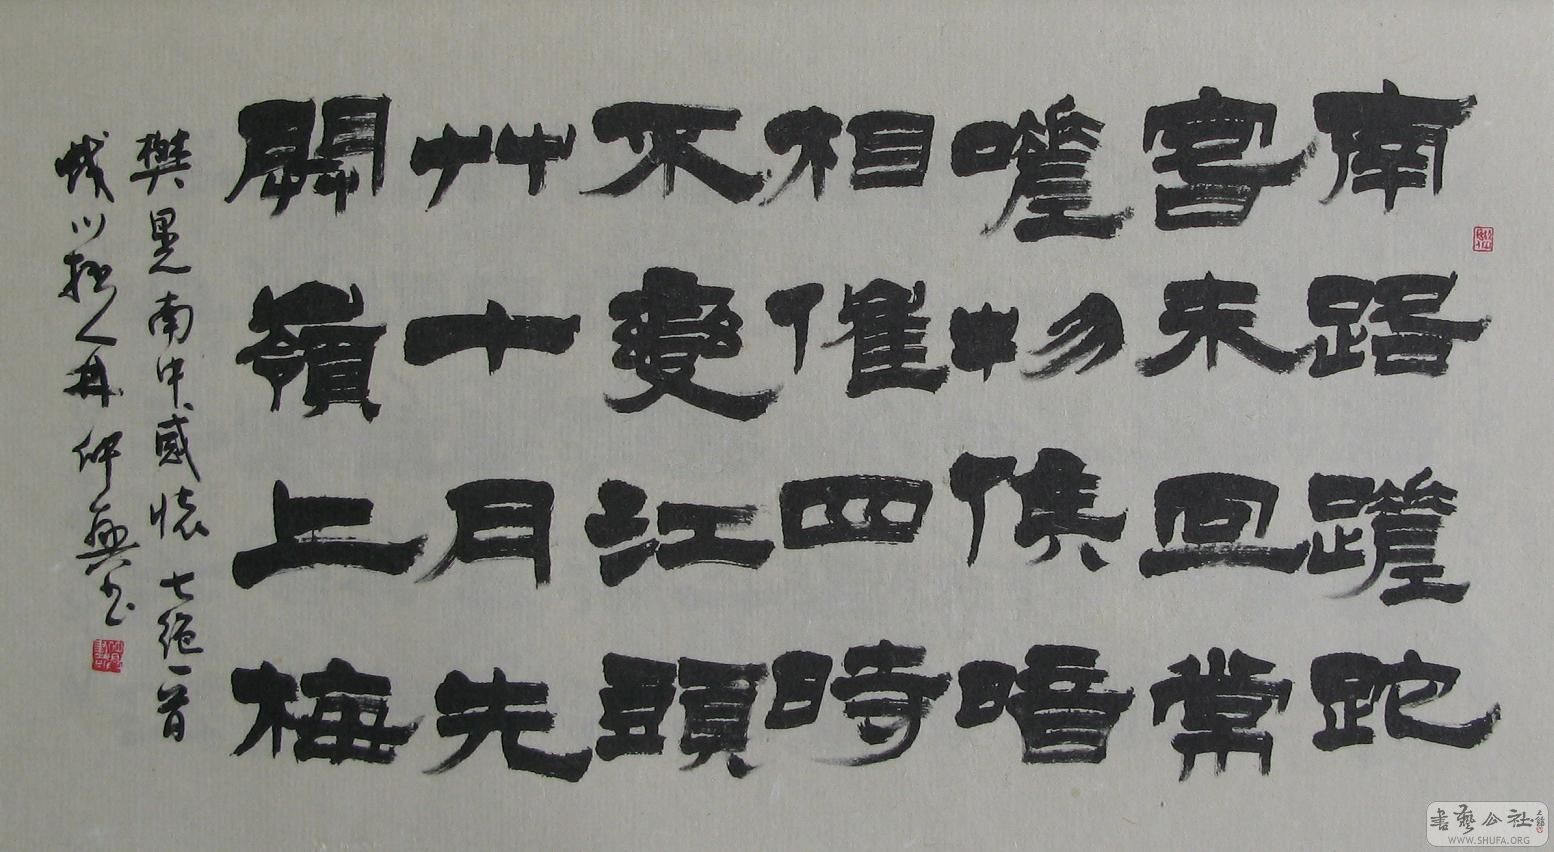 南路蹉跎
客未回常
嗟物候暗
相催四時
不變江頭
艸十月先
開嶺上梅
樊晃南中感懷七绝一首
人 仲 书
書藝公社
WWW.SHUFA.ORG